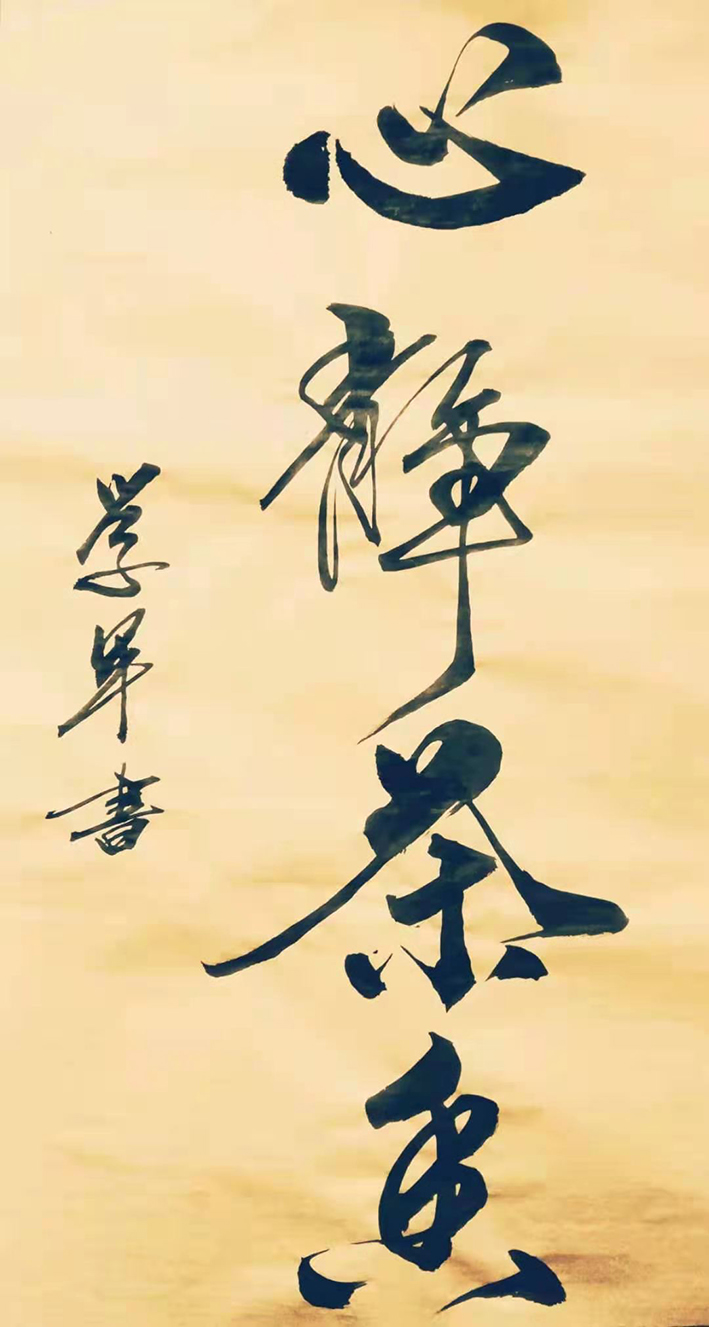 心静茶香
学 書